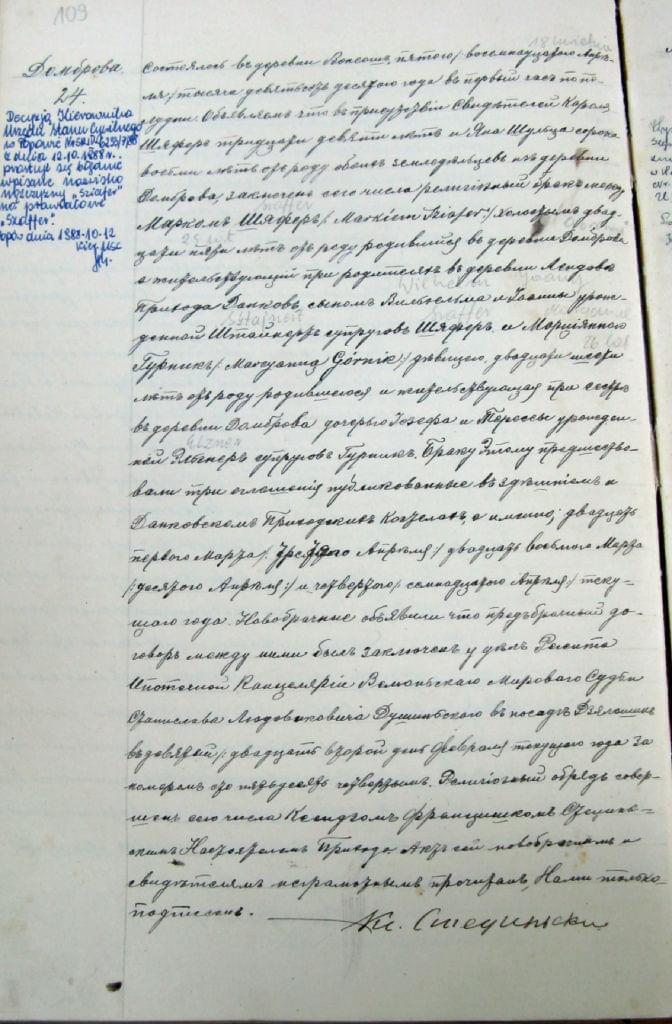 109
Домброва.
24.
Decyzją Kierownika
Urzędu Stanu Cywilnego
w Popowie
z dnia 12.10.1988 r.
prostuje się błędnie
wpisane nazwisko
mężczyzny "Szefer"
na prawidłowe
"Szaffer".
dnia 1988-10-12
18 kwietnia
Состоялось въ деревни пятого /: восемнадцатого Апрѣ-
ля :/ тысяча девятьсотъ десятого года въ первый часъ по по-
лудни. Объявляемъ что въ присутствіи Свидѣтелей Кароля
Шяферъ тридцати девяти лѣтъ и Яна Шульца сорока
восьми лѣтъ отъ роду обоихъ земледѣльцевъ изъ деревни
Домброва, заключенъ сего числа религіозный бракъ между
Szaffer
Маркомъ Шяферъ /: Markiem :/ холостымъ двад-
25 lat
цати пяти лѣтъ отъ роду родившимся въ деревни Домброва
а жительствующій при родителяхъ въ деревни Лендова
Wilhelm Joanny
Прихода Данковъ, сыномъ Вильгельма и Іоанны урож-
Sztajnert Szaffer Marcjanna
денной Штайнертъ супруговъ Шяферъ, и Марціянною
26 lat
Гурникъ /: Marcyanną Górnik :/ дѣвицею, двадцати шести
лѣтъ отъ роду родившеюся и жительствующая при сестрѣ
въ деревни Домброва дочерью Іозефа и Терессы урожден-
Elzner
ной Эльснеръ супруговъ Гурникъ. Браку этому предшество-
вали три оглашенія публикованные въ здѣшнемъ и
Данковскомъ Приходскихъ Костелахъ, а именно: двадцать
первого Марта /: третьего Апрѣля :/ двадцать восьмого Марта
/: десятого Апрѣля :/ и четвертого /: семнадцатого Апрѣля :/ теку-
щаго года. Новобрачные объявили что предбрачный до-
говоръ между ними былъ заключенъ у дѣлъ Регента
Ипотечной Канцеляріи Велюньскаго Мирового Судьи
Станислава Людвиковича въ посадѣ Дзялошинъ
въ девятый /: двадцать второй день Февраля текущаго года за
номеромъ сто пятьдесятъ четвертымъ. Религіозный обрядъ совер-
шенъ сего числа Ксендзомъ Францишкомъ Стецинь-
скимъ Настоятелемъ Прихода. Актъ сей новобрачнымъ и
свидѣтелямъ неграмотнымъ прочитанъ, Нами только
подписанъ.
Кс. Стециньски